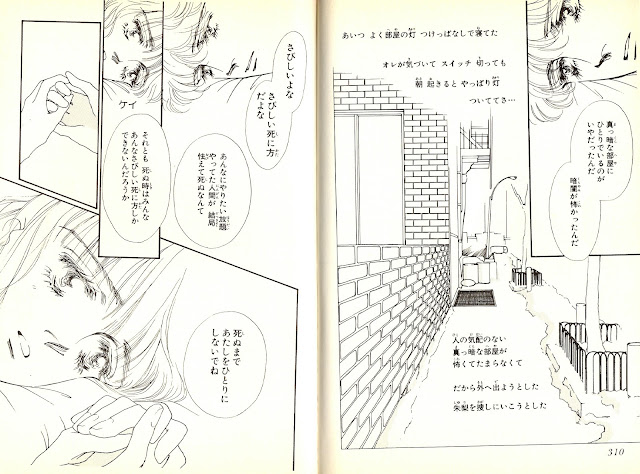 あいつ よく部屋の灯 つけっぱなしで寝てた
オレが気づいて スイッチ 切っても
朝 起きると やっぱり灯
ついててさ…
真っ暗な部屋に
ひとりでいるのが
いやだったんだ
暗闇が怖かったんだ
人の気配のない
真っ暗な部屋が
怖くてたまらなくて
だから外へ出ようとした
朱梨を捜しにいこうとした
310
さびしいよな
さびしい死に方
だよな
あんなにやりたい放題
やってた人間が 結局
怯えて死ぬなんて
ケイ
それとも 死ぬ時はみんな
あんなさびしい死に方しか
できないんだろうか
死ぬまで
あたしをひとりに
しないでね